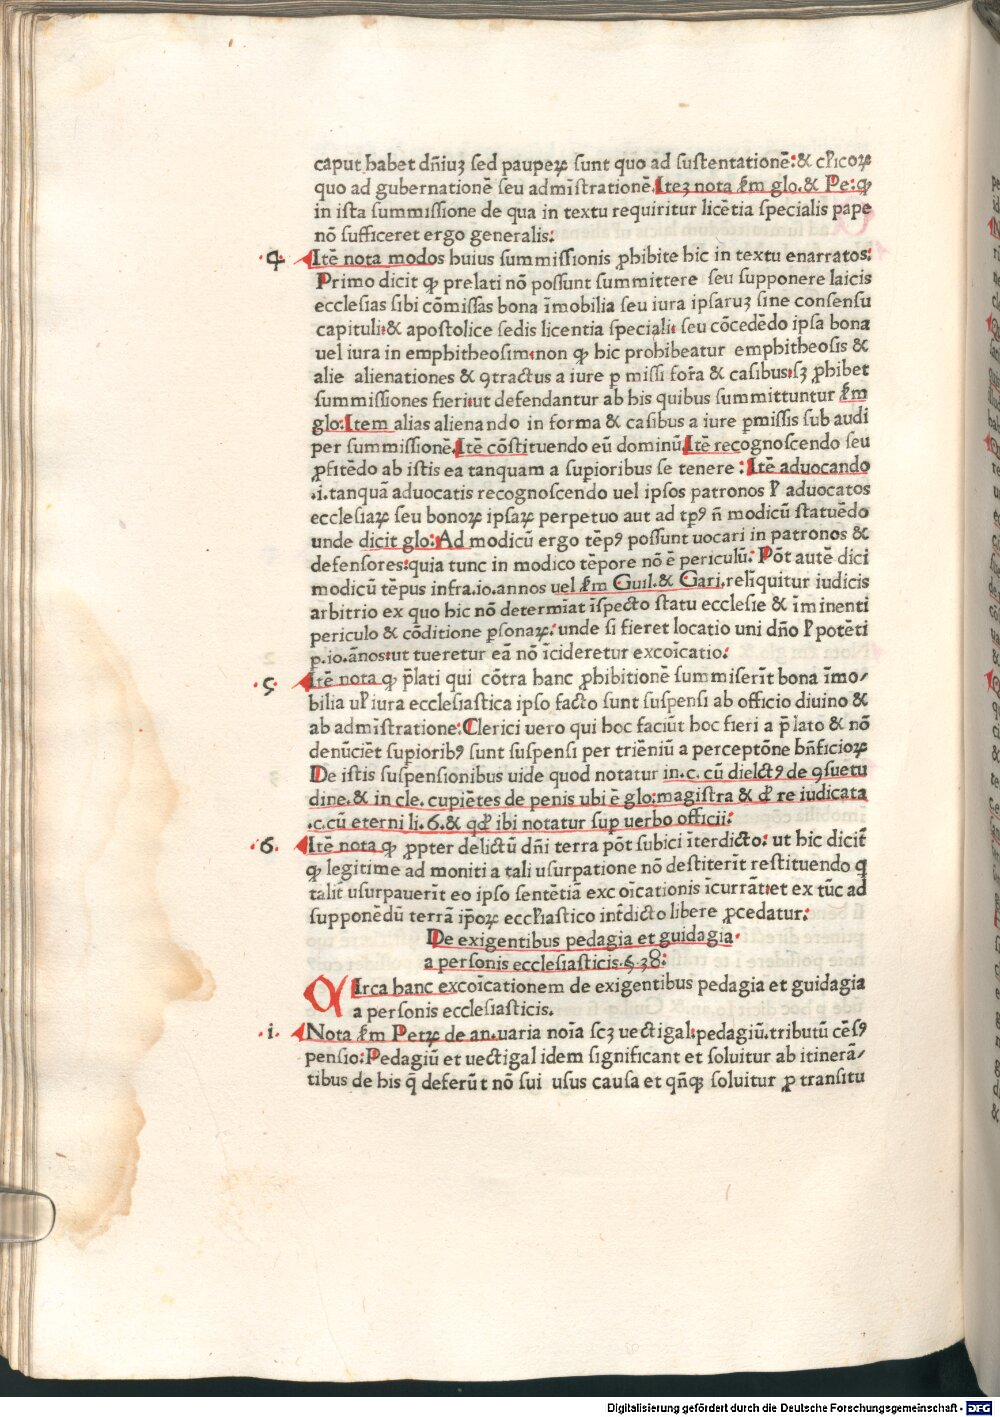 caput habet dñiuʒ sed pauperꝝ sunt quo ad sustentationē: & cl̄icoꝝ
quo ad gubernationē seu admīstrationē. Iteʒ nota ẜm glo. & Pe: ꝙ
in ista summissione de qua in textu requiritur licētia specialis pape
nō sufficeret ergo generalis:
.4. Itē nota modos huius summissionis ꝓhibite hic in textu enarratos:
Primo dicit ꝙ prelati nō possunt summittere seu supponere laicis
ecclesias sibi cōmissas bona īmobilia seu iura ipsaruʒ sine consensu
capituli: & apostolice sedis licentia speciali: seu cōcedēdo ipsa bona
uel iura in emphitheosim: non ꝙ hic prohibeatur emphitheosis &
alie alienationes & ꝯtractus a iure p missi for̄a & casibus: sʒ ꝓhibet
summissiones fieri: ut defendantur ab his quibus summittuntur ẜm
glo: Item alias alienando in forma & casibus a iure ꝑmissis sub audi
per summissionē. Itē cōstituendo eū dominū. Itē recognoscendo seu
ꝓfitēdo ab istis ea tanquam a supioribus se tenere: Itē aduocando
.i. tanquā aduocatis recognoscendo uel ipsos patronos ł aduocatos
ecclesiaꝝ seu bonoꝝ ipsaꝝ perpetuo aut ad tpꝰ ñ modicū statuēdo
unde dicit glo: Ad modicū ergo tēpꝰ possunt uocari in patronos &
defensores: quia tunc in modico tēpore nō ē periculū: Pōt autē dici
modicū tēpus infra .io. annos uel ẜm Guil. & Gari. relīquitur iudicis
arbitrio ex quo hic nō determīat īspecto statu ecclesie & īm inenti
periculo & cōditione ꝑsonaꝝ: unde si fieret locatio uni dño ł potēti
p .io. ānos: ut tueretur eā nō īcideretur excoīcatio:
.5. Itē nota ꝙ p̄lati qui cōtra hanc ꝓhibitionē summiserīt bona īmo/
bilia uł iura ecclesiastica ipso facto sunt suspensi ab officio diuino &
ab admīstratione: Clerici uero qui hoc faciūt hoc fieri a p̄lato & nō
denūciēt supioribꝰ sunt suspensi per triēniū a perceptōne bn̄ficioꝝ
De istis suspensionibus uide quod notatur in .c. cū dilectꝰ de ꝯsuetu
dine. & in cle. cupiētes de penis ubi ē glo: magistra & đ re iudicata
.c. cū eterni li. 6. & qđ ibi notatur sup uerbo officii:
.6. Itē nota ꝙ ꝓpter delictū dñi terra pōt subici īterdicto: ut hic dicit̄
ꝙ legitime ad moniti a tali usurpatione nō destiterīt restituendo q
talit̄ usurpauerīt eo ipso sentētiā exc oīcationis īcurrāt: et ex tūc ad
supponēdū terrā ip̄oꝝ eccl̄iastico int̄dicto libere ꝓcedatur:
De exigentibus pedagia et guidagia
a personis ecclesiasticis. §. 38:
CIrca hanc excoīcationem de exigentibus pedagia et guidagia
a personis ecclesiasticis.
.i. Nota ẜm Petꝝ de an. uaria noīa scʒ uectigal: pedagiū. tributū cēsꝰ
pensio: Pedagiū et uectigal idem significant et soluitur ab itinerā/
tibus de his q̄ deferūt nō sui usus causa et qn̄qꝫ soluitur ꝓ transitu
Digitalisierung gefördert durch die Deutsche Forschungsgemeinschaft - DFG